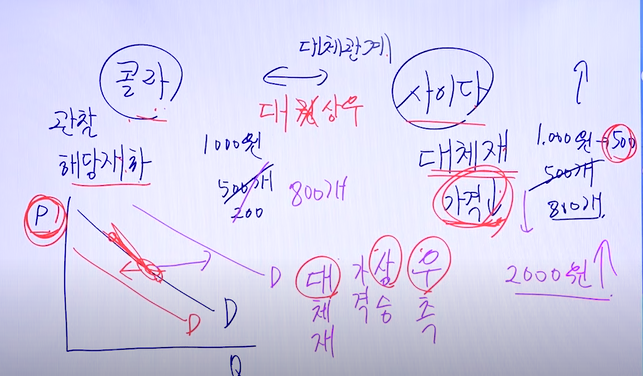 대체관계
콜라
사이다
대체 상우
관찰
해당재화
1000원
500개
200
800개
대체재
가격↓
1.000원→500
500개
800개
2000원↑
P
D
D
D
Q
대체재
가격
상승
우측